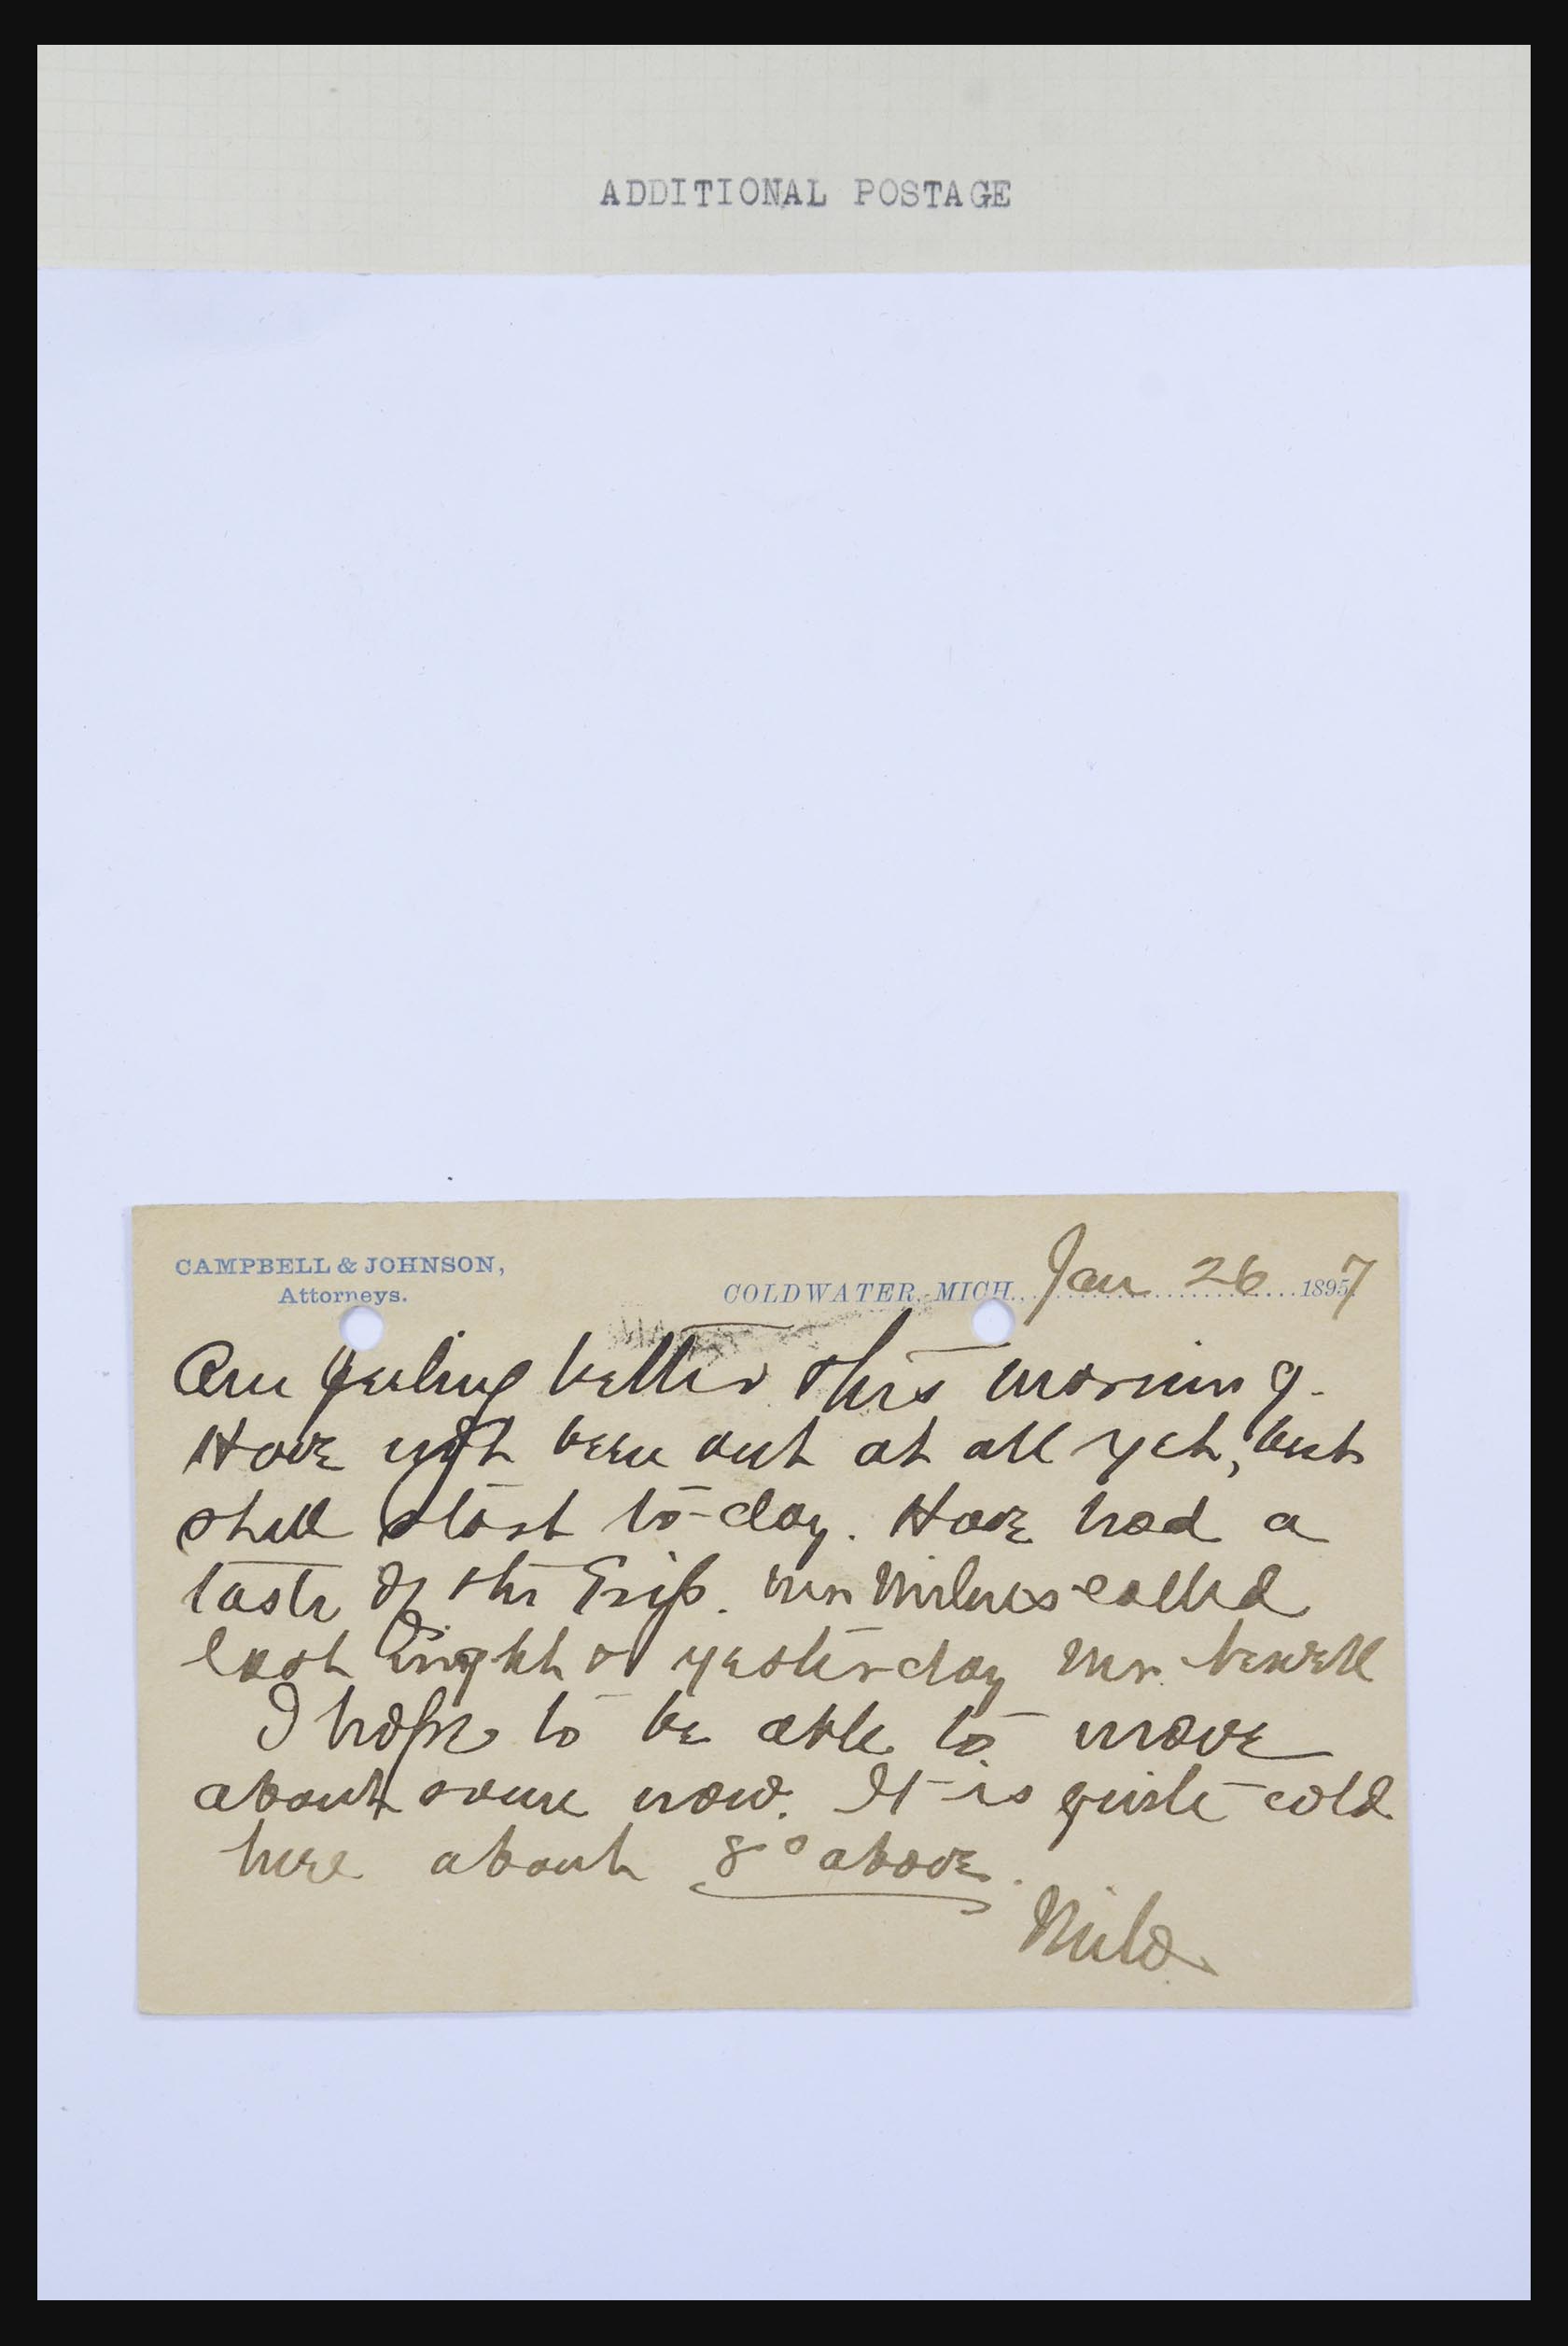 ADDITIONAL POSTAGE
CAMPBELL & JOHNSON,
Attorneys.
COLDWATER, MICH. Jan 26 1897
Am feeling better this morning.
Have not been out at all yet, but
shall start to-day. Have had a
taste of the Grip. Mr Milnes called
last night & yesterday Mr.
I hope to be able to move
about some now. It is quite cold
here about 8° above.
Milo